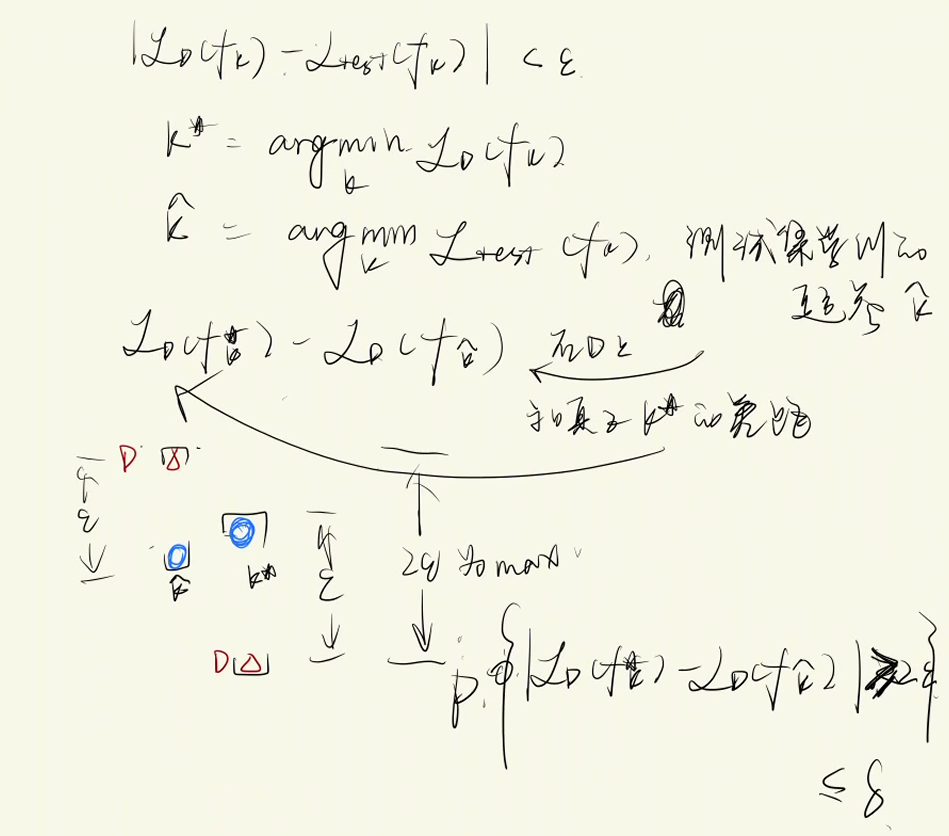 |L_D(f_k) - L_test(f_k)| < ε
k* = argmin_k L_D(f_k)
k̂ = argmin_k L_test(f_k).
测试集学到的
L_D(f_k*) - L_D(f_k̂)
在D上
k̂
和真正k*的
D
ε
k̂
k*
ε
2ε
max
D
P{|L_D(f_k*) - L_D(f_k̂)| ≥ 2ε}
≤ δ